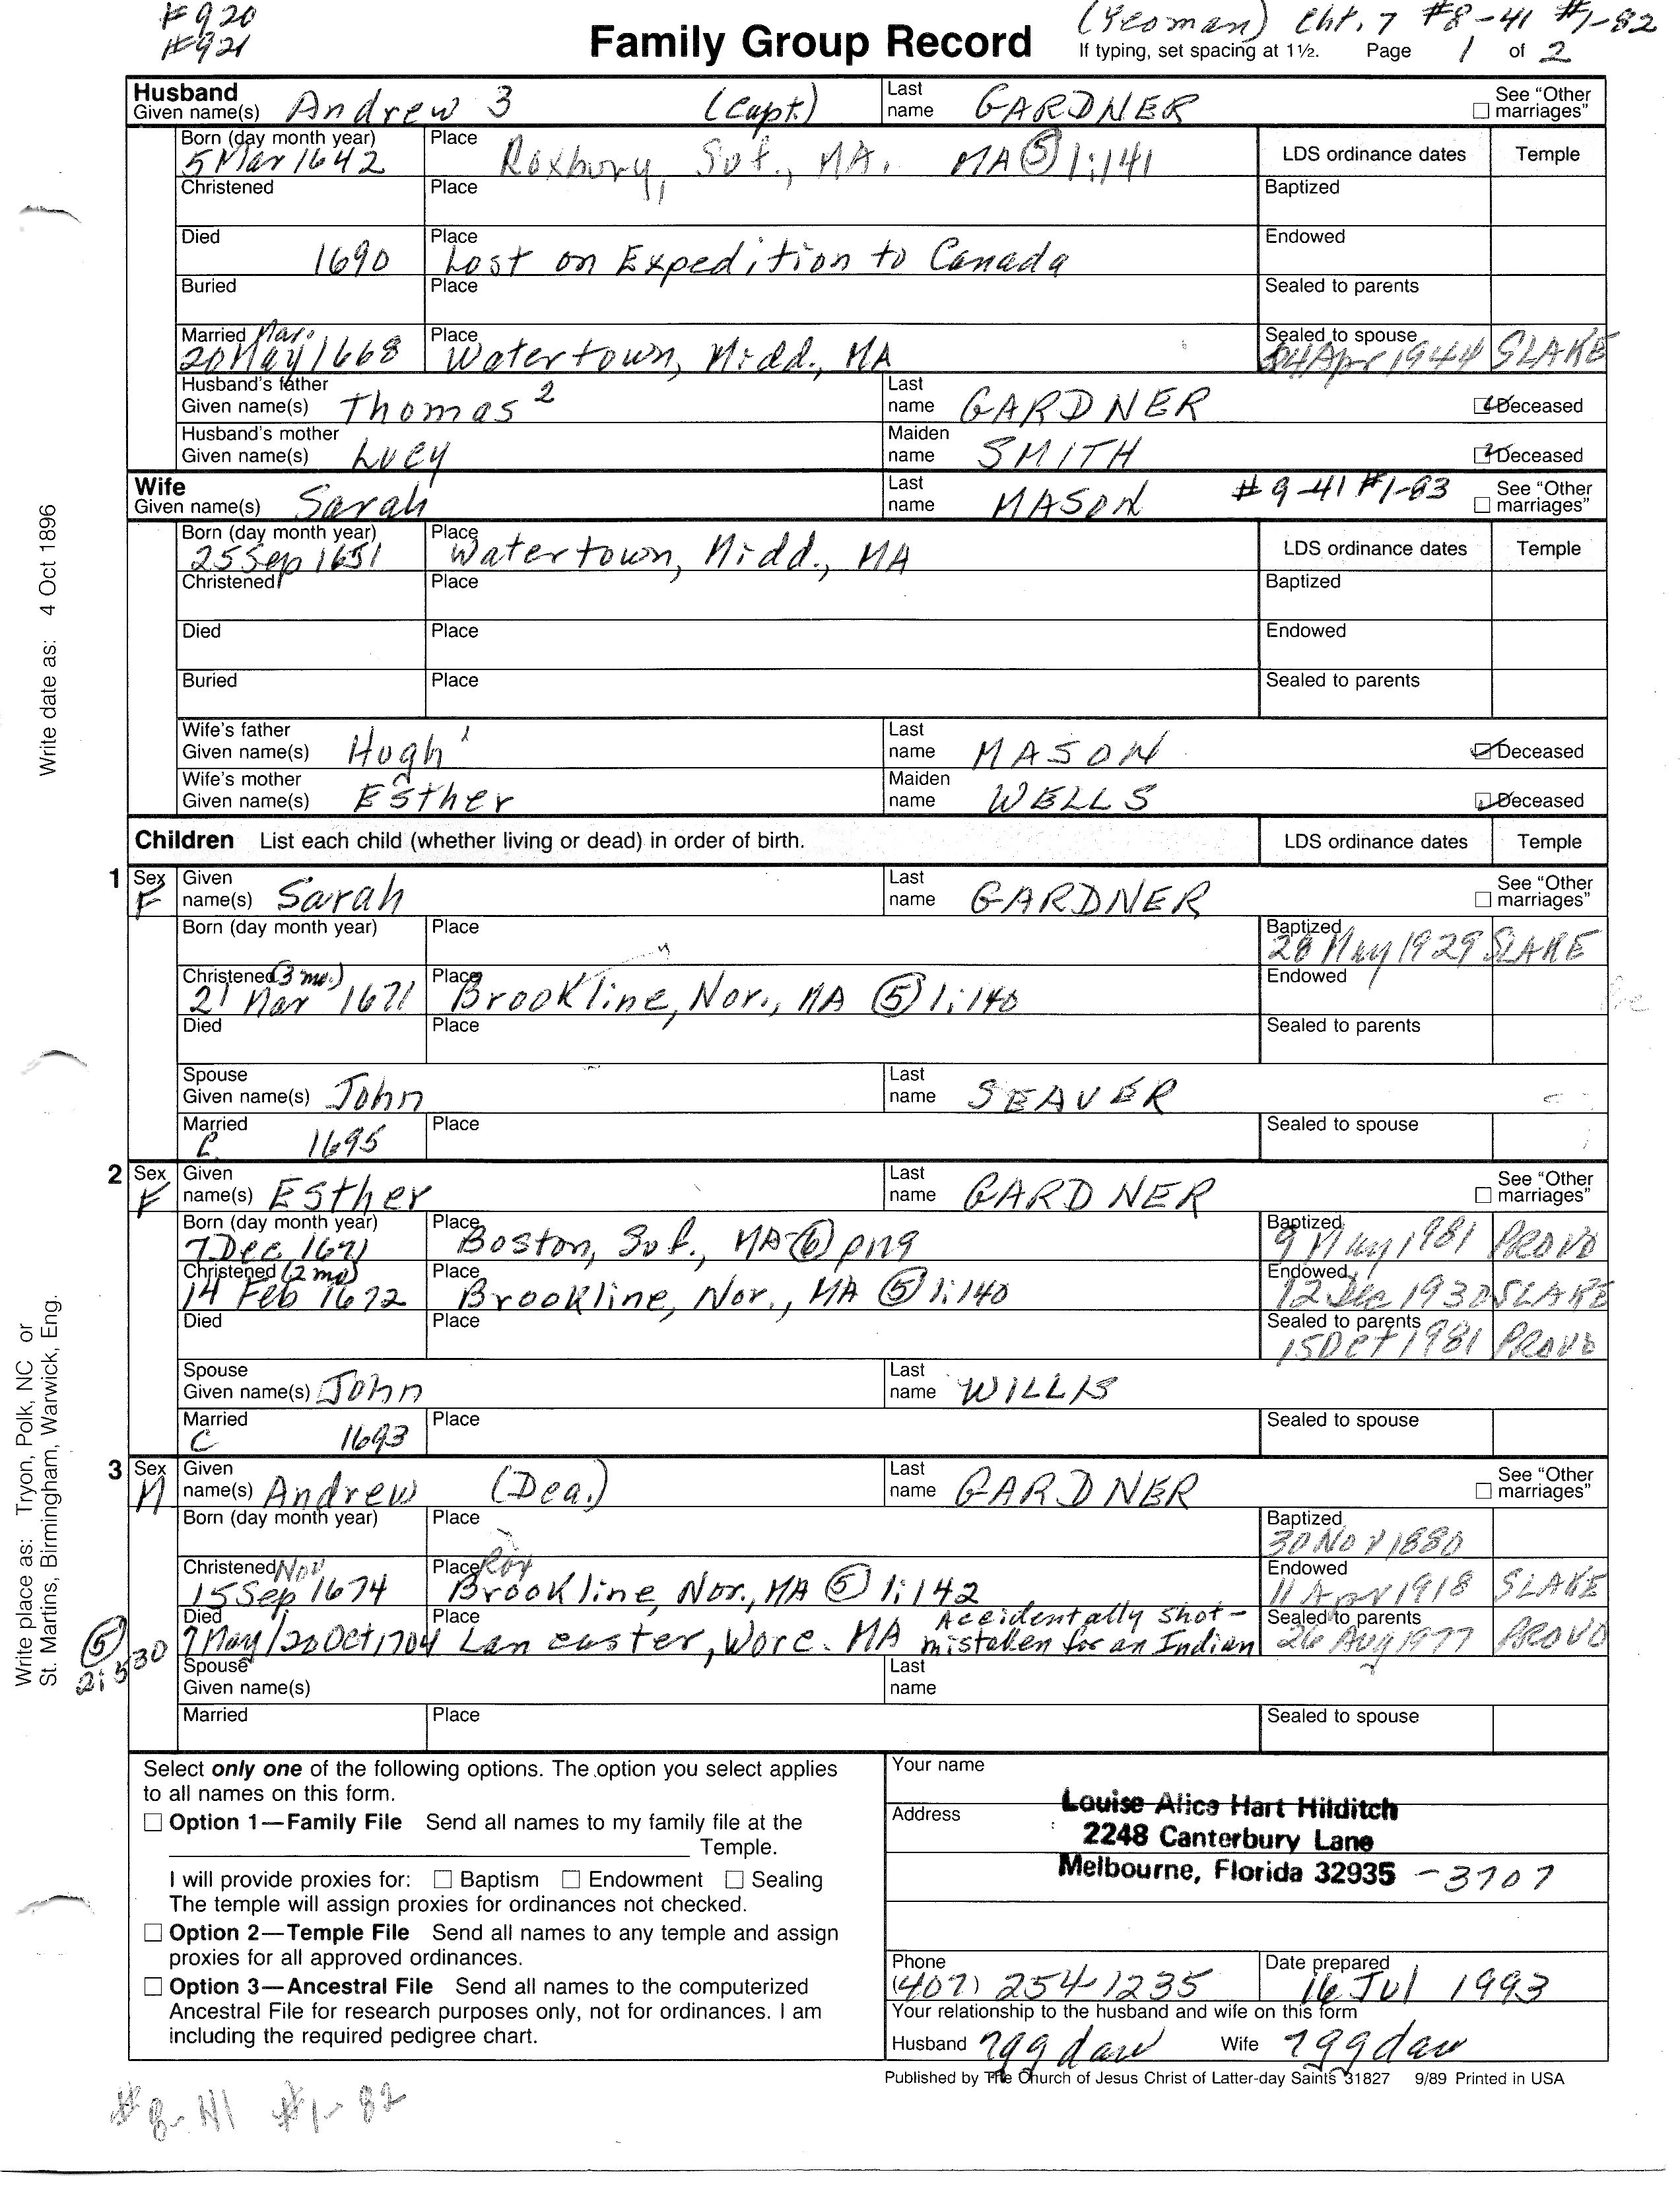 #920
#921
Family Group Record
(Yeoman) Cht. 7 #8-41 #1-82
If typing, set spacing at 1½. Page 1 of 2
Husband
Given name(s) Andrew 3 (Capt) Last name GARDNER See “Other marriages”
Born (day month year) 5 Mar 1642 Place Roxbury, Suf., MA. MA (5) 1:141 LDS ordinance dates Temple
Christened Place Baptized
Died 1690 Place Lost on Expedition to Canada Endowed
Buried Place Sealed to parents
Married Mar. 20 May 1668 Place Watertown, Midd., MA Sealed to spouse 04 Apr 1944 SLAKE
Husband's father
Given name(s) Thomas 2 Last name GARDNER Deceased
Husband's mother
Given name(s) Lucy Maiden name SMITH Deceased
Wife
Given name(s) Sarah Last name MASON #9-41 #1-83 See “Other marriages”
Born (day month year) 25 Sep 1651 Place Watertown, Midd., MA LDS ordinance dates Temple
Christened Place Baptized
Died Place Endowed
Buried Place Sealed to parents
Wife's father
Given name(s) Hugh 1 Last name MASON Deceased
Wife's mother
Given name(s) Esther Maiden name WELLS Deceased
Children List each child (whether living or dead) in order of birth. LDS ordinance dates Temple
1 Sex F Given name(s) Sarah Last name GARDNER See “Other marriages”
Born (day month year) Place Baptized 28 May 1929 SLAKE
Christened (3 mo.) 21 Mar 1671 Place Brookline, Nor., MA (5) 1:140 Endowed
Died Place Sealed to parents
Spouse
Given name(s) John Last name SEAVER
Married C 1695 Place Sealed to spouse
2 Sex F Given name(s) Esther Last name GARDNER See “Other marriages”
Born (day month year) 7 Dec 1671 Place Boston, Suf., MA (6) png Baptized 9 May 1981 PROVO
Christened (2 mo) 14 Feb 1672 Place Brookline, Nor., MA (5) 1:140 Endowed 12 Dec 1930 SLAKE
Died Place Sealed to parents 15 Oct 1981 PROVO
Spouse
Given name(s) John Last name WILLIS
Married C 1693 Place Sealed to spouse
3 Sex M Given name(s) Andrew (Dea.) Last name GARDNER See “Other marriages”
Born (day month year) Place Baptized 30 Nov 1880
Christened Nov 15 Sep 1674 Place Rox Brookline, Nor., MA (5) 1:142 Endowed 11 Apr 1918 SLAKE
Died 7 May/20 Oct 1704 Place Lancaster, Worc. MA Accidentally shot - mistaken for an Indian Sealed to parents 26 Aug 1977 PROVO
(5) 2:530
Spouse
Given name(s) Last name
Married Place Sealed to spouse
Select only one of the following options. The option you select applies
to all names on this form.
Option 1—Family File Send all names to my family file at the
Temple.
I will provide proxies for: Baptism Endowment Sealing
The temple will assign proxies for ordinances not checked.
Option 2—Temple File Send all names to any temple and assign
proxies for all approved ordinances.
Option 3—Ancestral File Send all names to the computerized
Ancestral File for research purposes only, not for ordinances. I am
including the required pedigree chart.
Your name
Louise Alice Hart Hilditch
Address
2248 Canterbury Lane
Melbourne, Florida 32935 -3707
Phone (407) 254-1235 Date prepared 16 Jul 1993
Your relationship to the husband and wife on this form
Husband 7ggdau Wife 7ggdau
Published by The Church of Jesus Christ of Latter-day Saints 31827 9/89 Printed in USA
#8-41 #1-82
Write date as: 4 Oct 1896
Write place as: Tryon, Polk, NC or
St. Martins, Birmingham, Warwick, Eng.